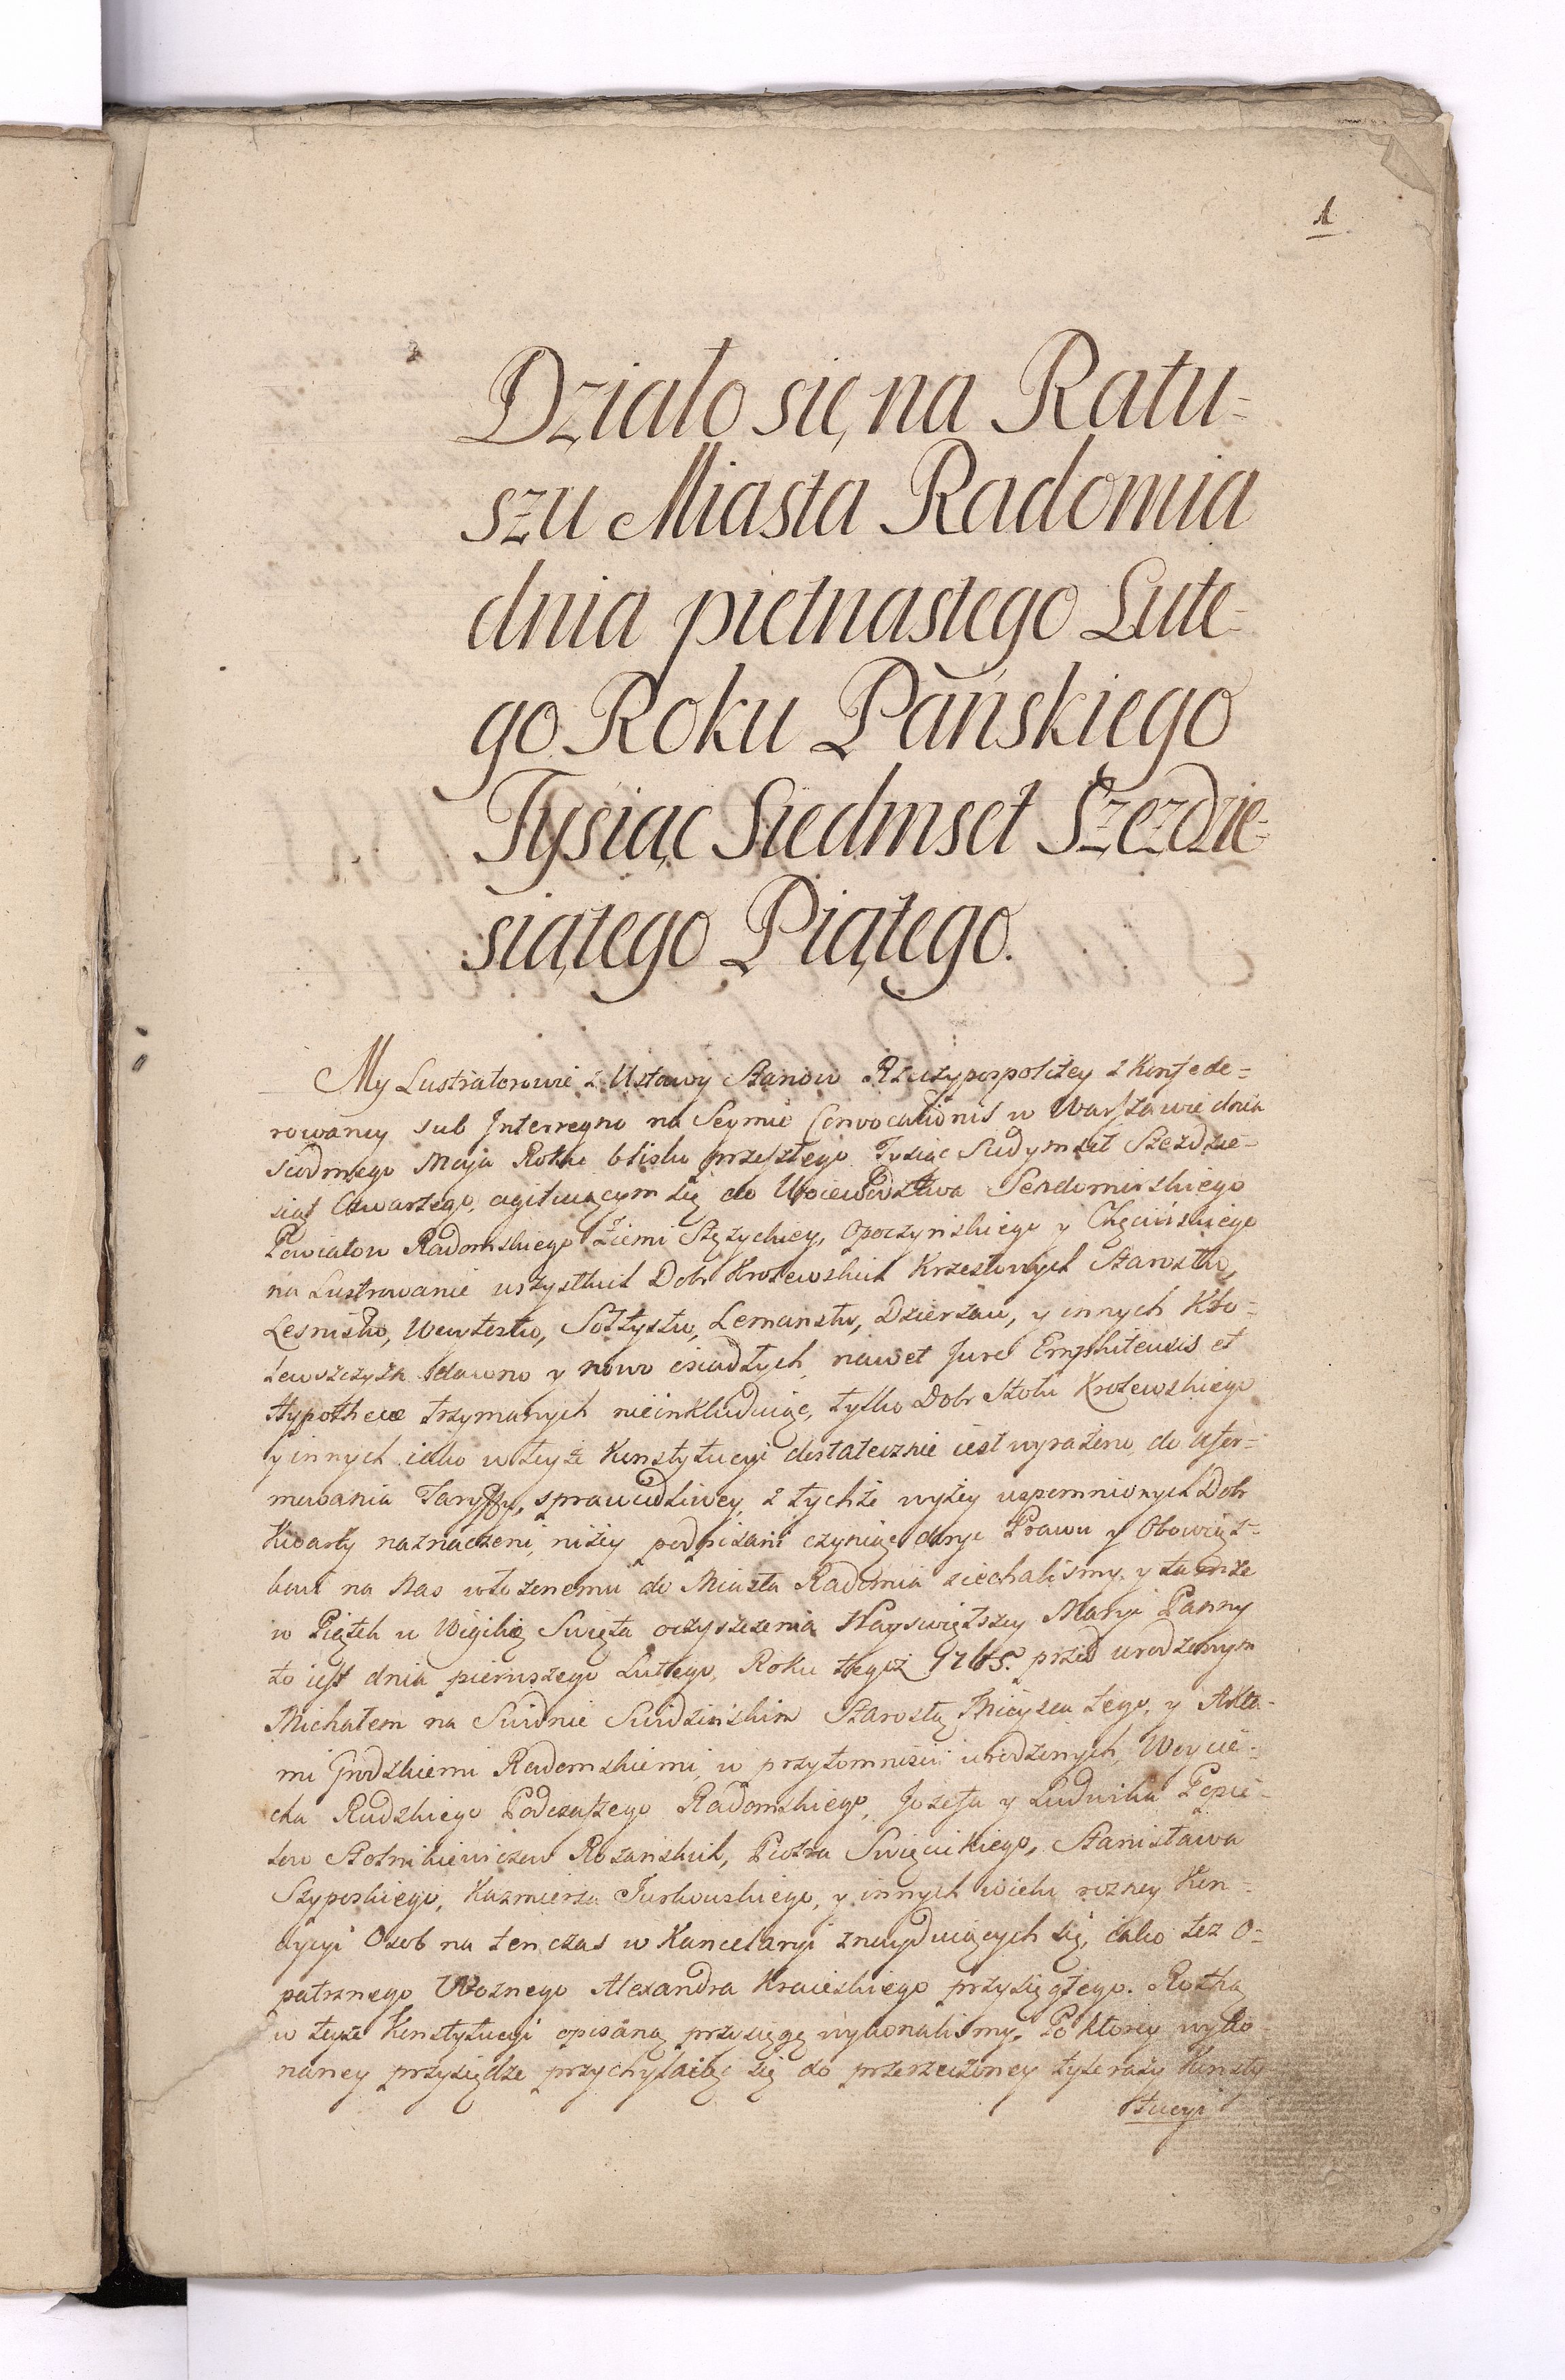 1
Działo się na Ratu=
szu Miasta Radomia
dnia pietnastego Lute=
go Roku Pańskiego
Tysiąc Siedmset Szezdzie=
siątego Piątego.
My Lustratorowie z Ustawy Stanow Rzeczypospolitey z Konfede=
rowaney sub Interregno na Seymie Convocationis w Warszawie dnia
siodmego Maja Roku blisko przeszłego Tysiąc Siedymset Szezdzie=
siąt Czwartego, agituiącym się do Woiewodztwa Sendomirskiego
Powiatow Radomskiego Ziemi Stężyckiey, Opoczynskiego y Chęcińskiego
na Lustrowanie wszystkich Dobr Krolewskich Krzesłowych Starostw,
Lesnistw, Woytostw, Sołtystw, Lemanstw, Dzierżaw, y innych Kro=
lewszczyzn dawno y nowo osiadłych, nawet Jure Emphiteusis et
Hypothecæ trzymanych nieinkluduiąc, tylko Dobr Stołu Krolewskiego
y innych iako w teyże Konstytucyi dostatecznie iest wyrażono, do ufor=
mowania Taryffy, sprawiedliwey, z tychże wyżey wspomnionych Dobr
Kwarty naznaczeni, niżey podpisani czyniąc dosyc Prawu y Obowiąz=
kowi na Nas włożonemu do Miasta Radomia ziechalismy, y tamże
w Piątek w Wigilią Swięta oczyszczenia Nayswiętszey Maryi Panny
to iest dnia pierwszego Lutego, Roku tegoż 1765. przed urodzonym
Michałem na Swidnie Swidzinskim Starostą Mieysca tego, y Akta=
mi Grodzkiemi Radomskiemi, w przytomnosci urodzonych, Woycie=
cha Rudzkiego Podczaszego Radomskiego, Jozefa y Ludwika Popie=
low Stolnikiewiczow Rozanskich, Piotra Swięcickiego, Stanisława
Szyposkiego, Kazmierza Turkowskiego, y innych wielu rozney Kon=
dycyi Osob na ten czas w Kancelaryi znayduiących się, iako też O=
patrznego Woznego Alexandra Kraieskiego przysięgłego. Rothą
w teyże Konstytucyi opisaną przysięgę wykonalismy. Po ktorey wyko=
naney przysiędze przychylaiąc się do przerzeczoney tyle razy Konsty
tucyi